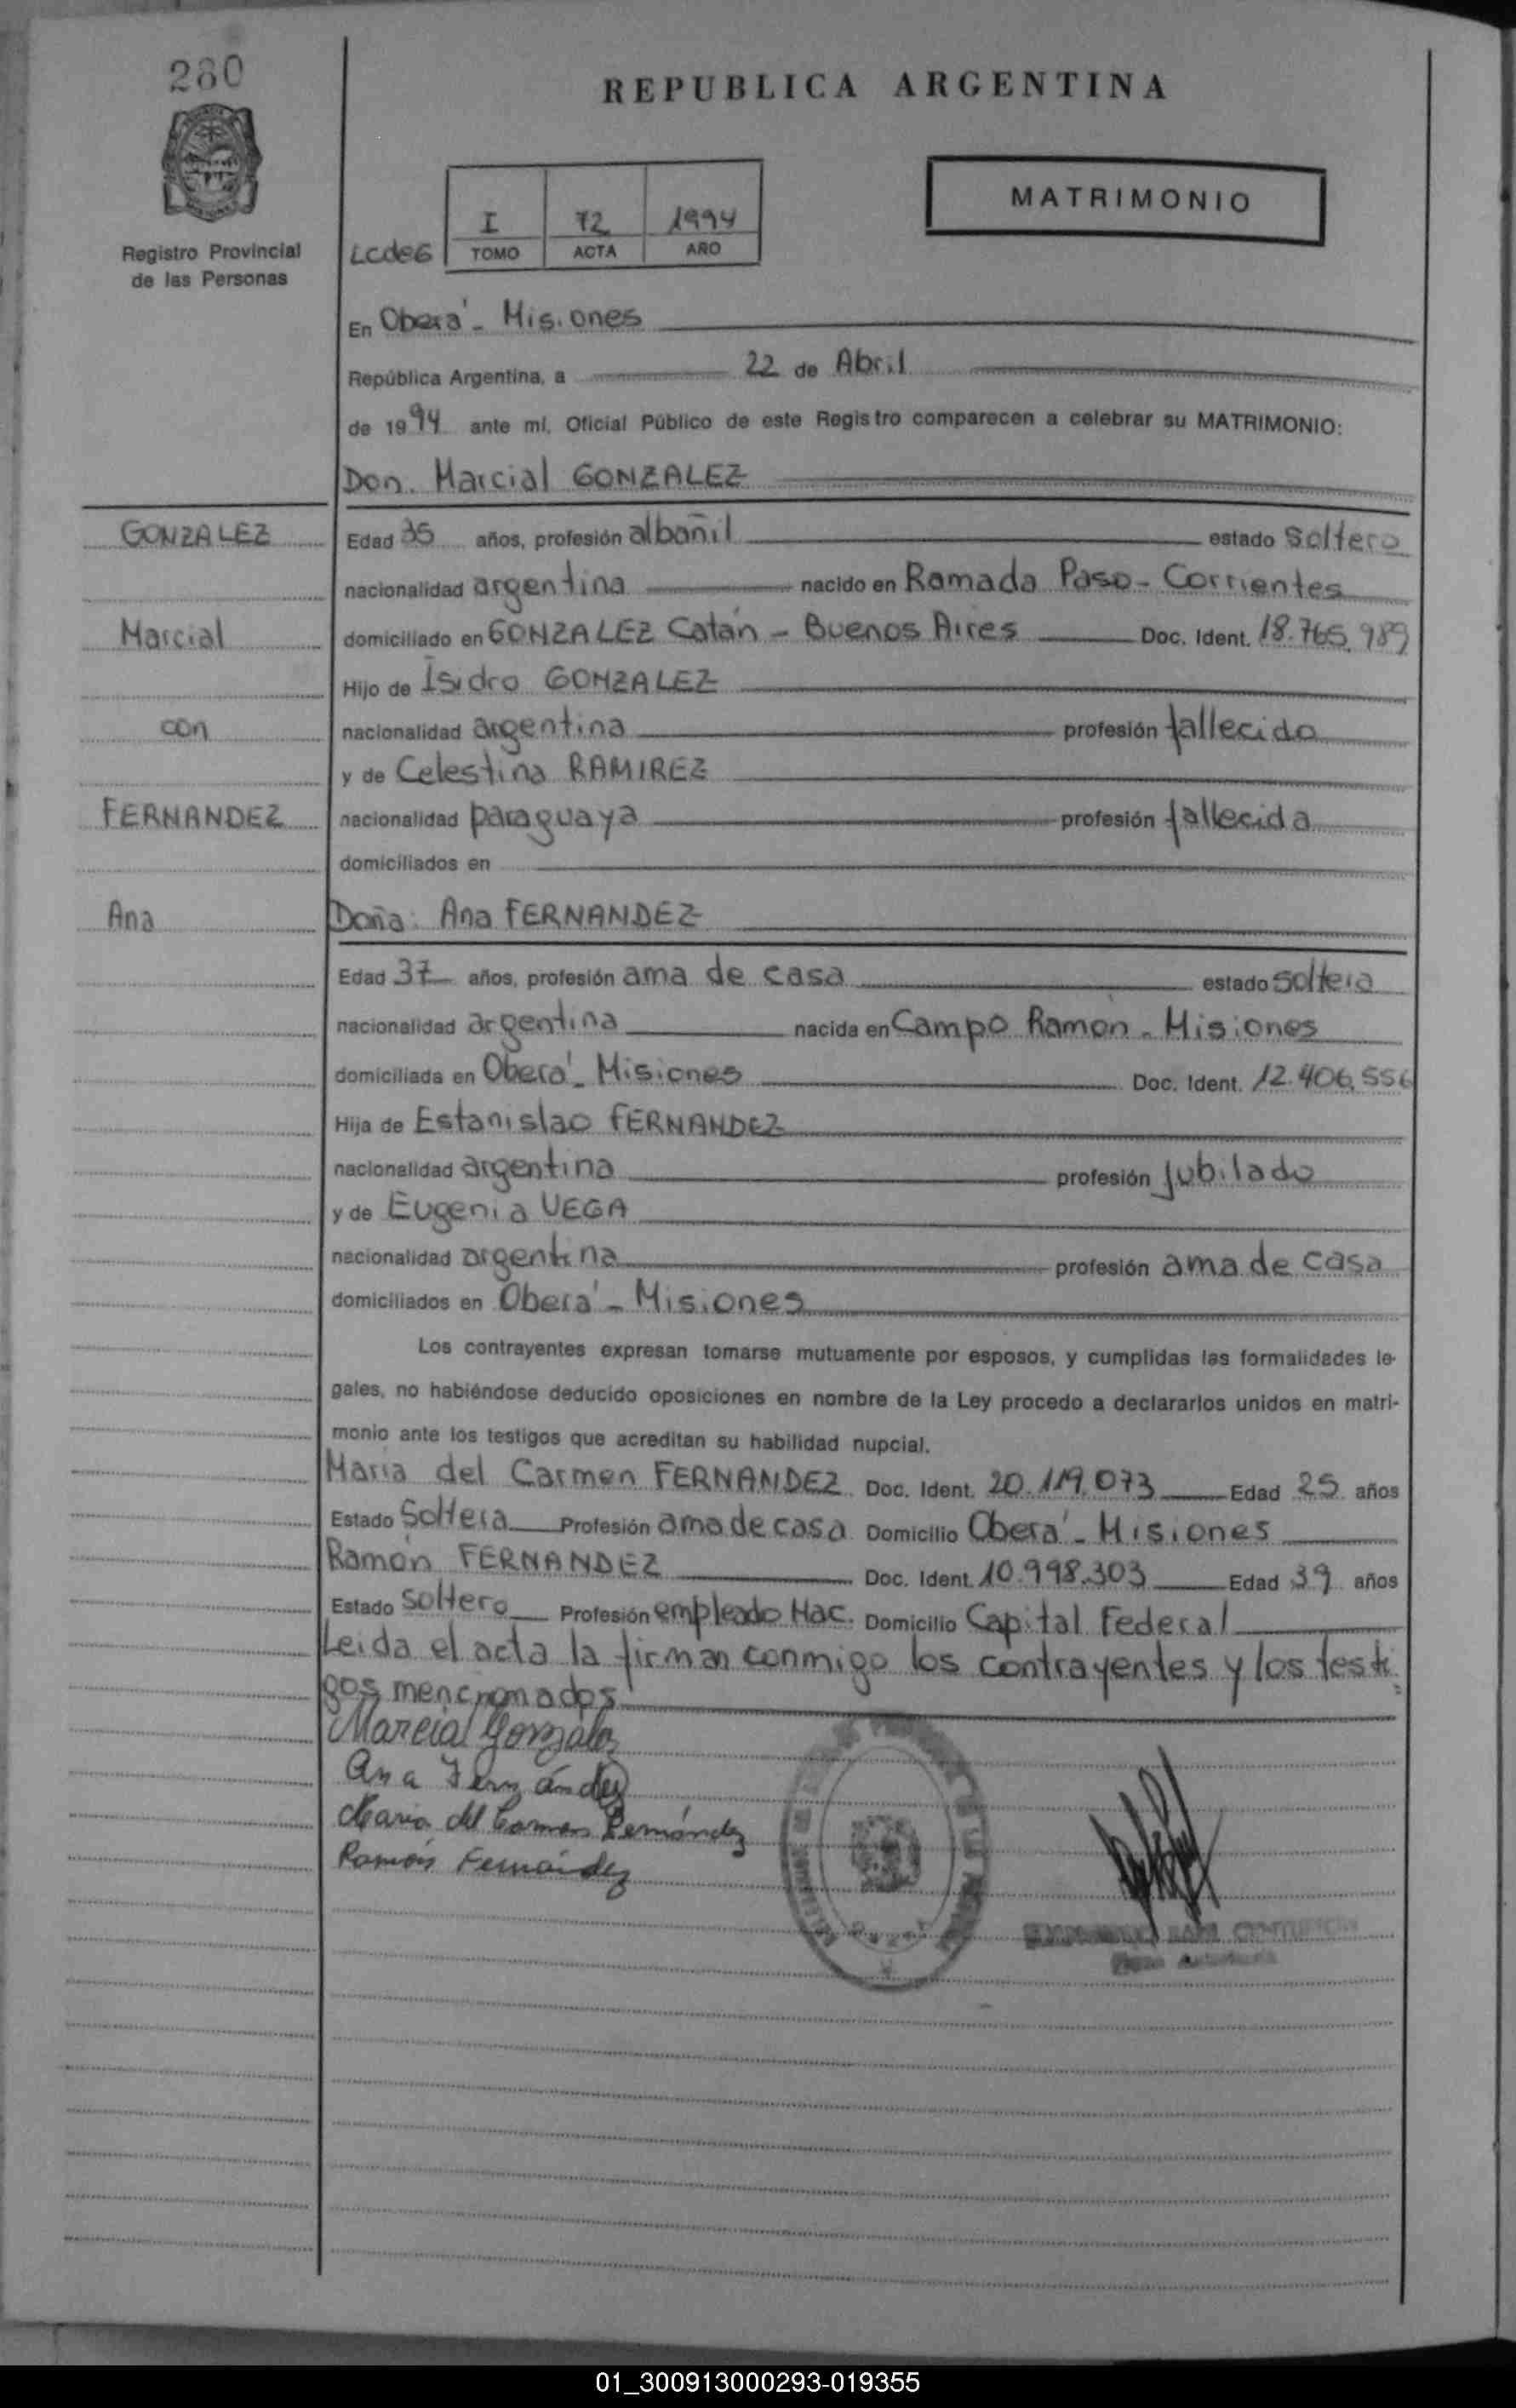 280
REPUBLICA ARGENTINA
MATRIMONIO
Registro Provincial
de las Personas
Lcde6
I 72 1994
TOMO ACTA AÑO
En Oberá - Misiones
República Argentina, a 22 de Abril
de 1994 ante mí, Oficial Público de este Registro comparecen a celebrar su MATRIMONIO:
Don. Marcial GONZALEZ
GONZALEZ
Edad 35 años, profesión albañil estado Soltero
nacionalidad argentina nacido en Ramada Paso - Corrientes
Marcial
domiciliado en GONZALEZ Catán - Buenos Aires Doc. Ident. 18.765.989
Hijo de Isidro GONZALEZ
con
nacionalidad argentina profesión fallecido
y de Celestina RAMIREZ
FERNANDEZ
nacionalidad paraguaya profesión fallecida
domiciliados en
Ana
Doña: Ana FERNANDEZ
Edad 37 años, profesión ama de casa estado soltera
nacionalidad argentina nacida en Campo Ramón - Misiones
domiciliada en Oberá - Misiones Doc. Ident. 12.406.556
Hija de Estanislao FERNANDEZ
nacionalidad argentina profesión jubilado
y de Eugenia VEGA
nacionalidad argentina profesión ama de casa
domiciliados en Oberá - Misiones
Los contrayentes expresan tomarse mutuamente por esposos, y cumplidas las formalidades le-
gales, no habiéndose deducido oposiciones en nombre de la Ley procedo a declararlos unidos en matri-
monio ante los testigos que acreditan su habilidad nupcial.
Maria del Carmen FERNANDEZ Doc. Ident. 20.119.073 Edad 25 años
Estado Soltera Profesión ama de casa Domicilio Oberá - Misiones
Ramón FERNANDEZ Doc. Ident. 10.998.303 Edad 39 años
Estado Soltero Profesión empleado Nac. Domicilio Capital Federal
Leida el acta la firman conmigo los contrayentes y los testi
gos mencionados
Marcial Gonzalez
Ana Fernández
Maria del Carmen Fernández
Ramón Fernández
CENTURION
01_300913000293-019355